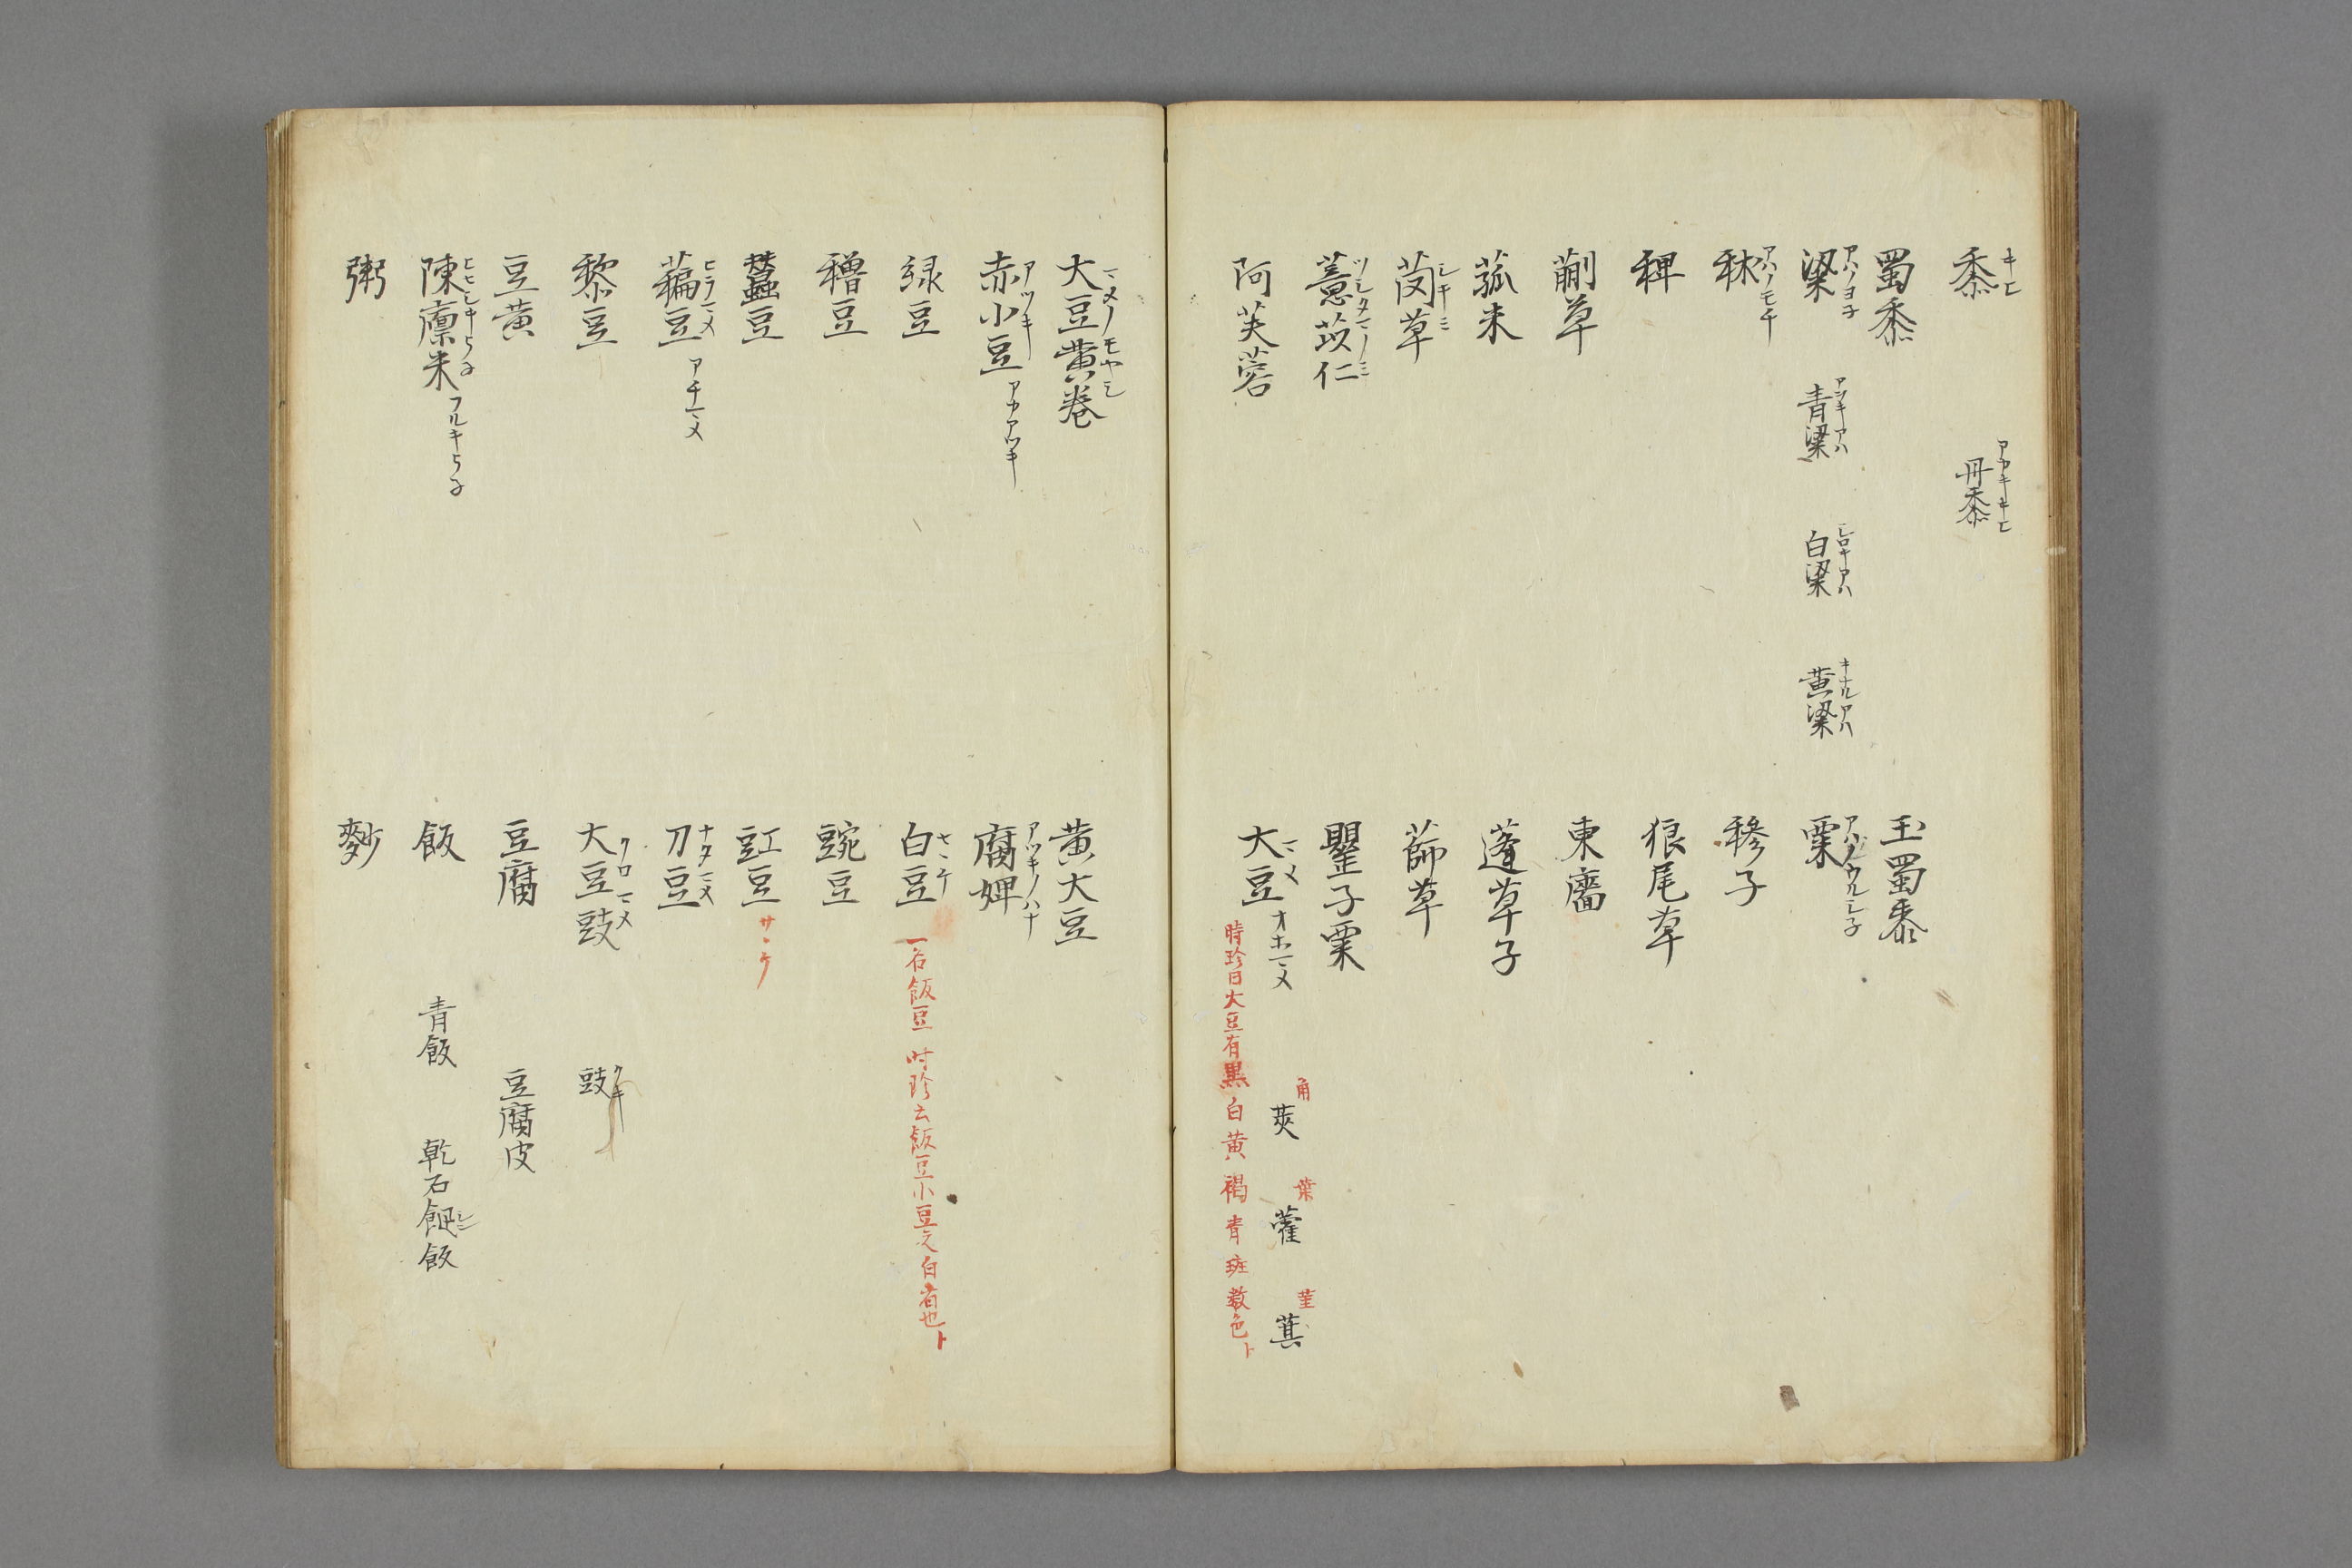 黍 キヒ 丹黍 アカキキヒ
蜀黍 玉蜀黍
粱 アハノヨネ 青粱 アヲキアハ 白粱 シロキアハ 黄粱 キナルアハ 粟 アハノウルシネ
秫 アハノモチ 穇子
稗 狼尾草
蒯草 東廧
菰米 蓬草子
䒬草 シキミ 蒒草
薏苡仁 ツシタマノミ 罌子粟
阿芙蓉 大豆 マメ オホマメ 莢 角 藿 葉 萁 茎
時珍曰大豆有黒白黄褐青斑数色ト
大豆黄巻 マメノモヤシ 黄大豆
赤小豆 アツキ アカアツキ 腐婢 アツキノハナ
緑豆 白豆 サヽケ 一名飯豆 時珍云飯豆小豆之白者也ト
穭豆 豌豆
蠶豆 豇豆 サヽケ
藊豆 ヒラマメ アチマメ 刀豆 ナタマメ
黎豆 大豆豉 クロマメ 豉 クキ
豆黄 豆腐 豆腐皮
陳廩米 ヒヒシキヨネ フルキヨネ 飯 青飯 乾石䬦飯
粥 麨